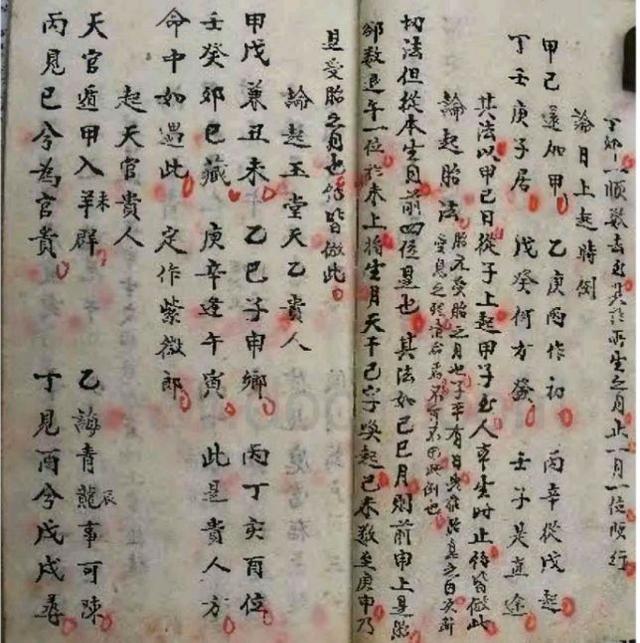 一順數去至其於所生之月止一月一位順行
論日上起時倒
甲己還加甲 乙庚丙作初 丙辛從戊起
丁壬庚子居 戊癸何方發 壬子是直途
其法以甲己日從子上起甲子至人本生時止餘皆倣此
論起胎法 胎元受胎之月也子平有曰
切法但從本生月前四位是也 其法如己巳月則前申上是胎
却數退午一位於未上將生月天干己字喚起己未數至庚申乃
是受胎之月也餘皆倣此
論起玉堂天乙貴人
甲戊兼丑未 乙己子申鄉 丙丁亥酉位
壬癸卯巳藏 庚辛逢午寅 此是貴人方
命中如遇此 定作紫微郎
起天官貴人
天官遁甲入羊未群 乙誨青龍辰事可陳
丙見巳兮為官貴 丁見酉兮戊戌尋